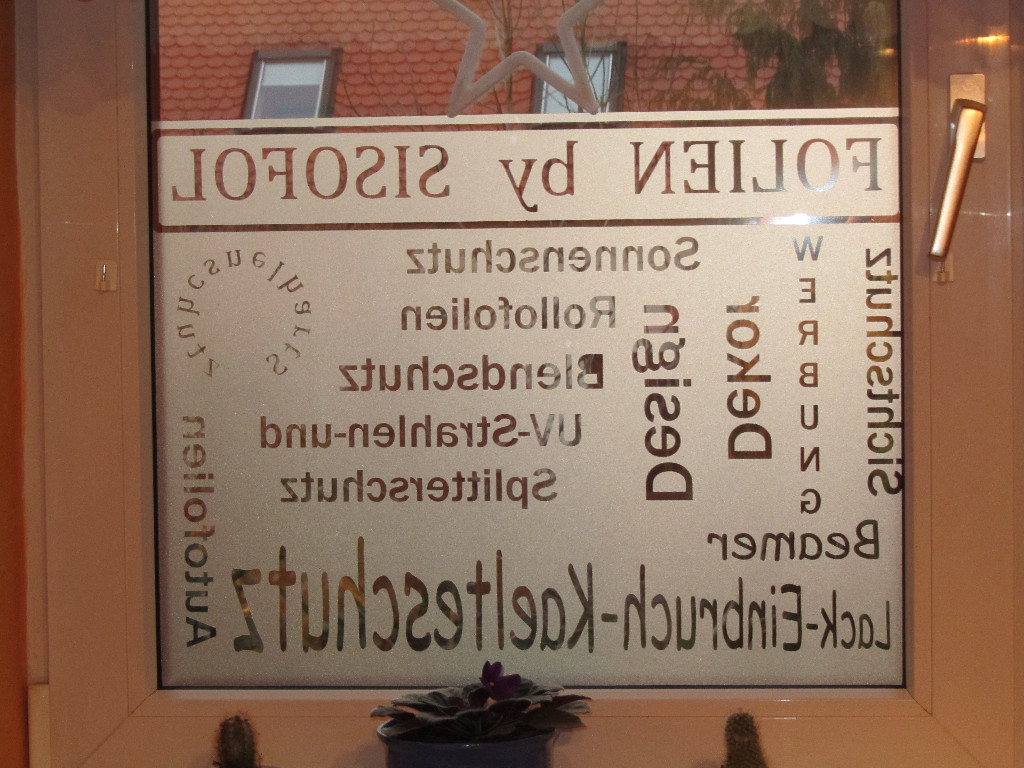 FOLIEN by SISOFOL
Sonnenschutz
Rollofolien
Blendschutz
UV-Strahlen-und
Splitterschutz
Design
Dekor
WERBUNG
Sichtschutz
Strahlenschutz
Autofolien
Beamer
Lack-Einbruch-Kaelteschutz